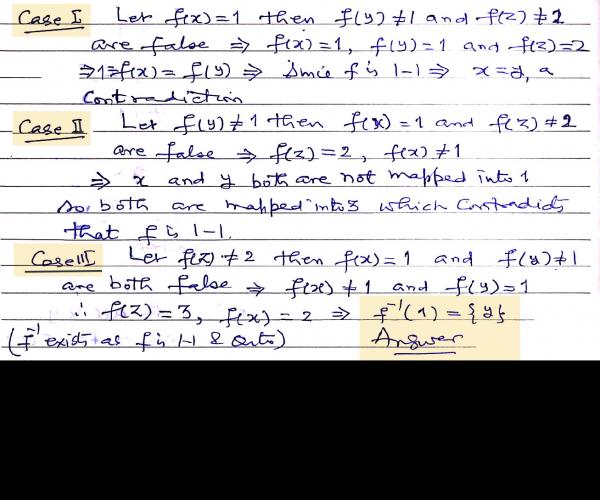 Case I Let f(x)=1 then f(y)≠1 and f(z)≠2
are false ⇒ f(x)=1, f(y)=1 and f(z)=2
⇒1=f(x)=f(y) ⇒ Since f is 1-1 ⇒ x=y, a
contradiction
Case II Let f(y)≠1 then f(x)=1 and f(z)≠2
are false ⇒ f(z)=2, f(x)≠1
⇒ x and y both are not mapped into 1
so, both are mapped into 3 which Contradicts
that f is 1-1.
Case III Let f(z)≠2 then f(x)=1 and f(y)≠1
are both false ⇒ f(x)≠1 and f(y)=1
∴ f(z)=3, f(x)=2 ⇒ f⁻¹(1)={y}
(f⁻¹ exists as f is 1-1 & Onto) Answer